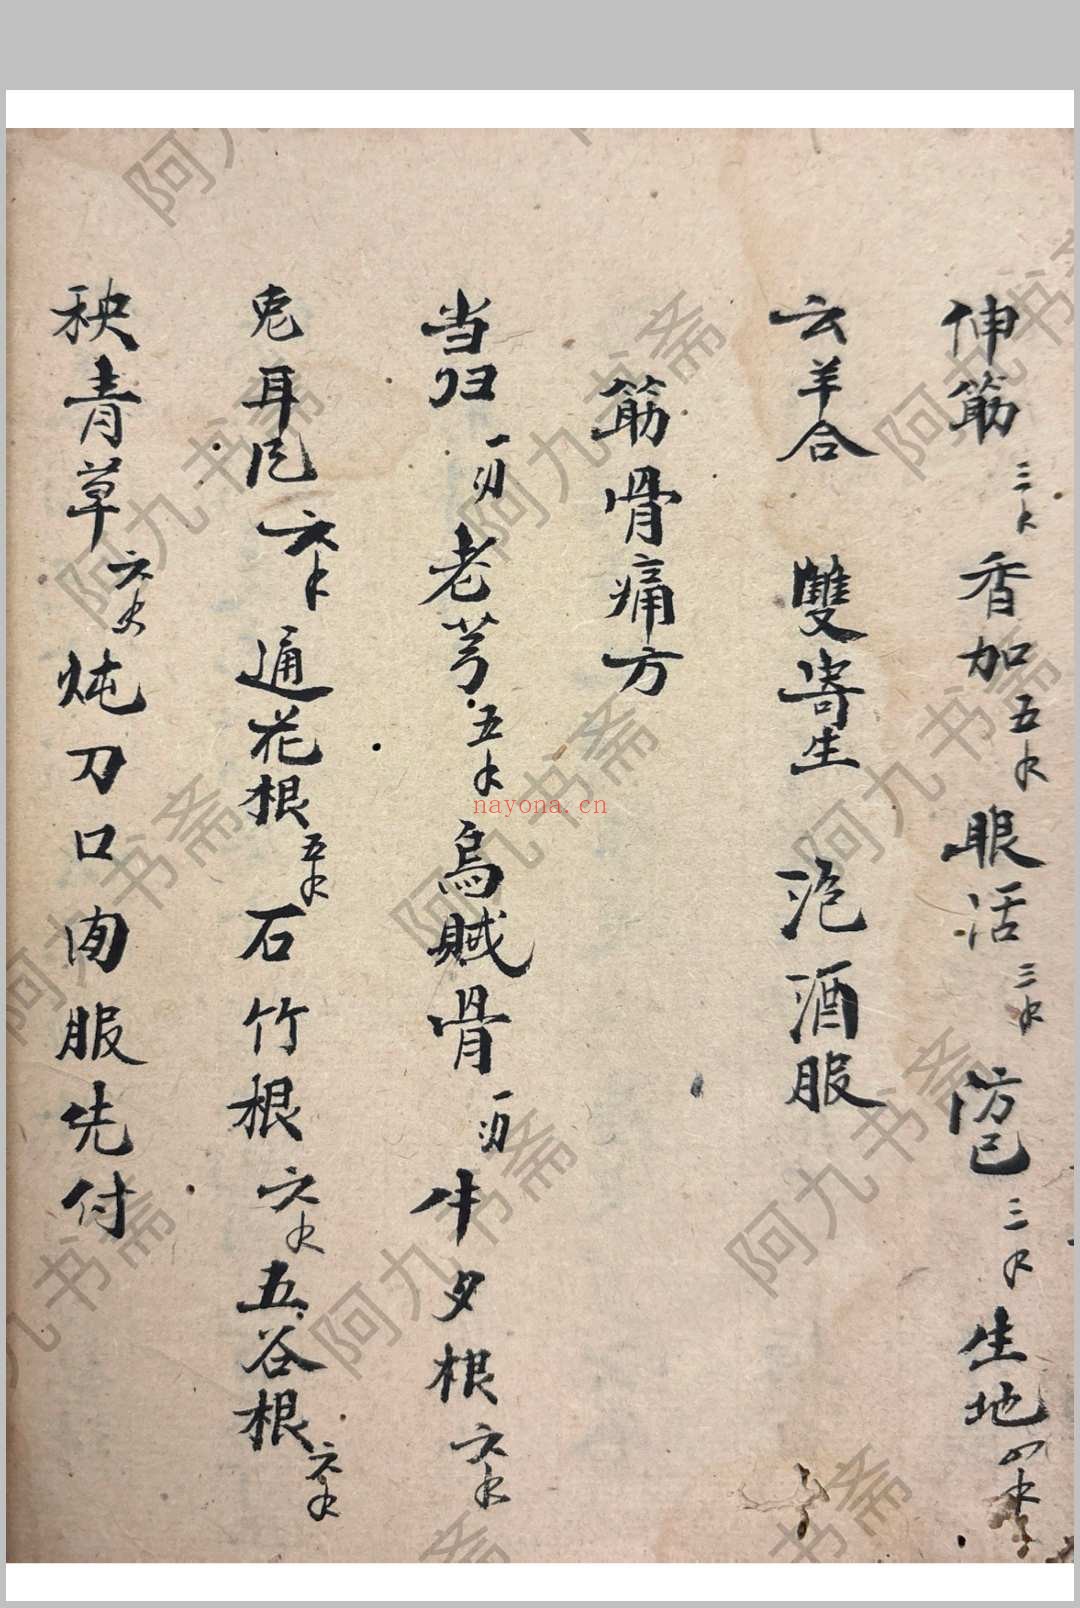 伸筋三钱香加五钱眼活三钱防已三钱生地四钱
云羊合 雙寄生 泡酒服
筋骨痛方
当归一两老芎五钱烏賊骨一两牛夕根六钱
兎耳风六钱通花根五钱石竹根六钱五谷根六钱
秧青草六钱炖刀口肉服先付
nayona.cn
阿九书斋